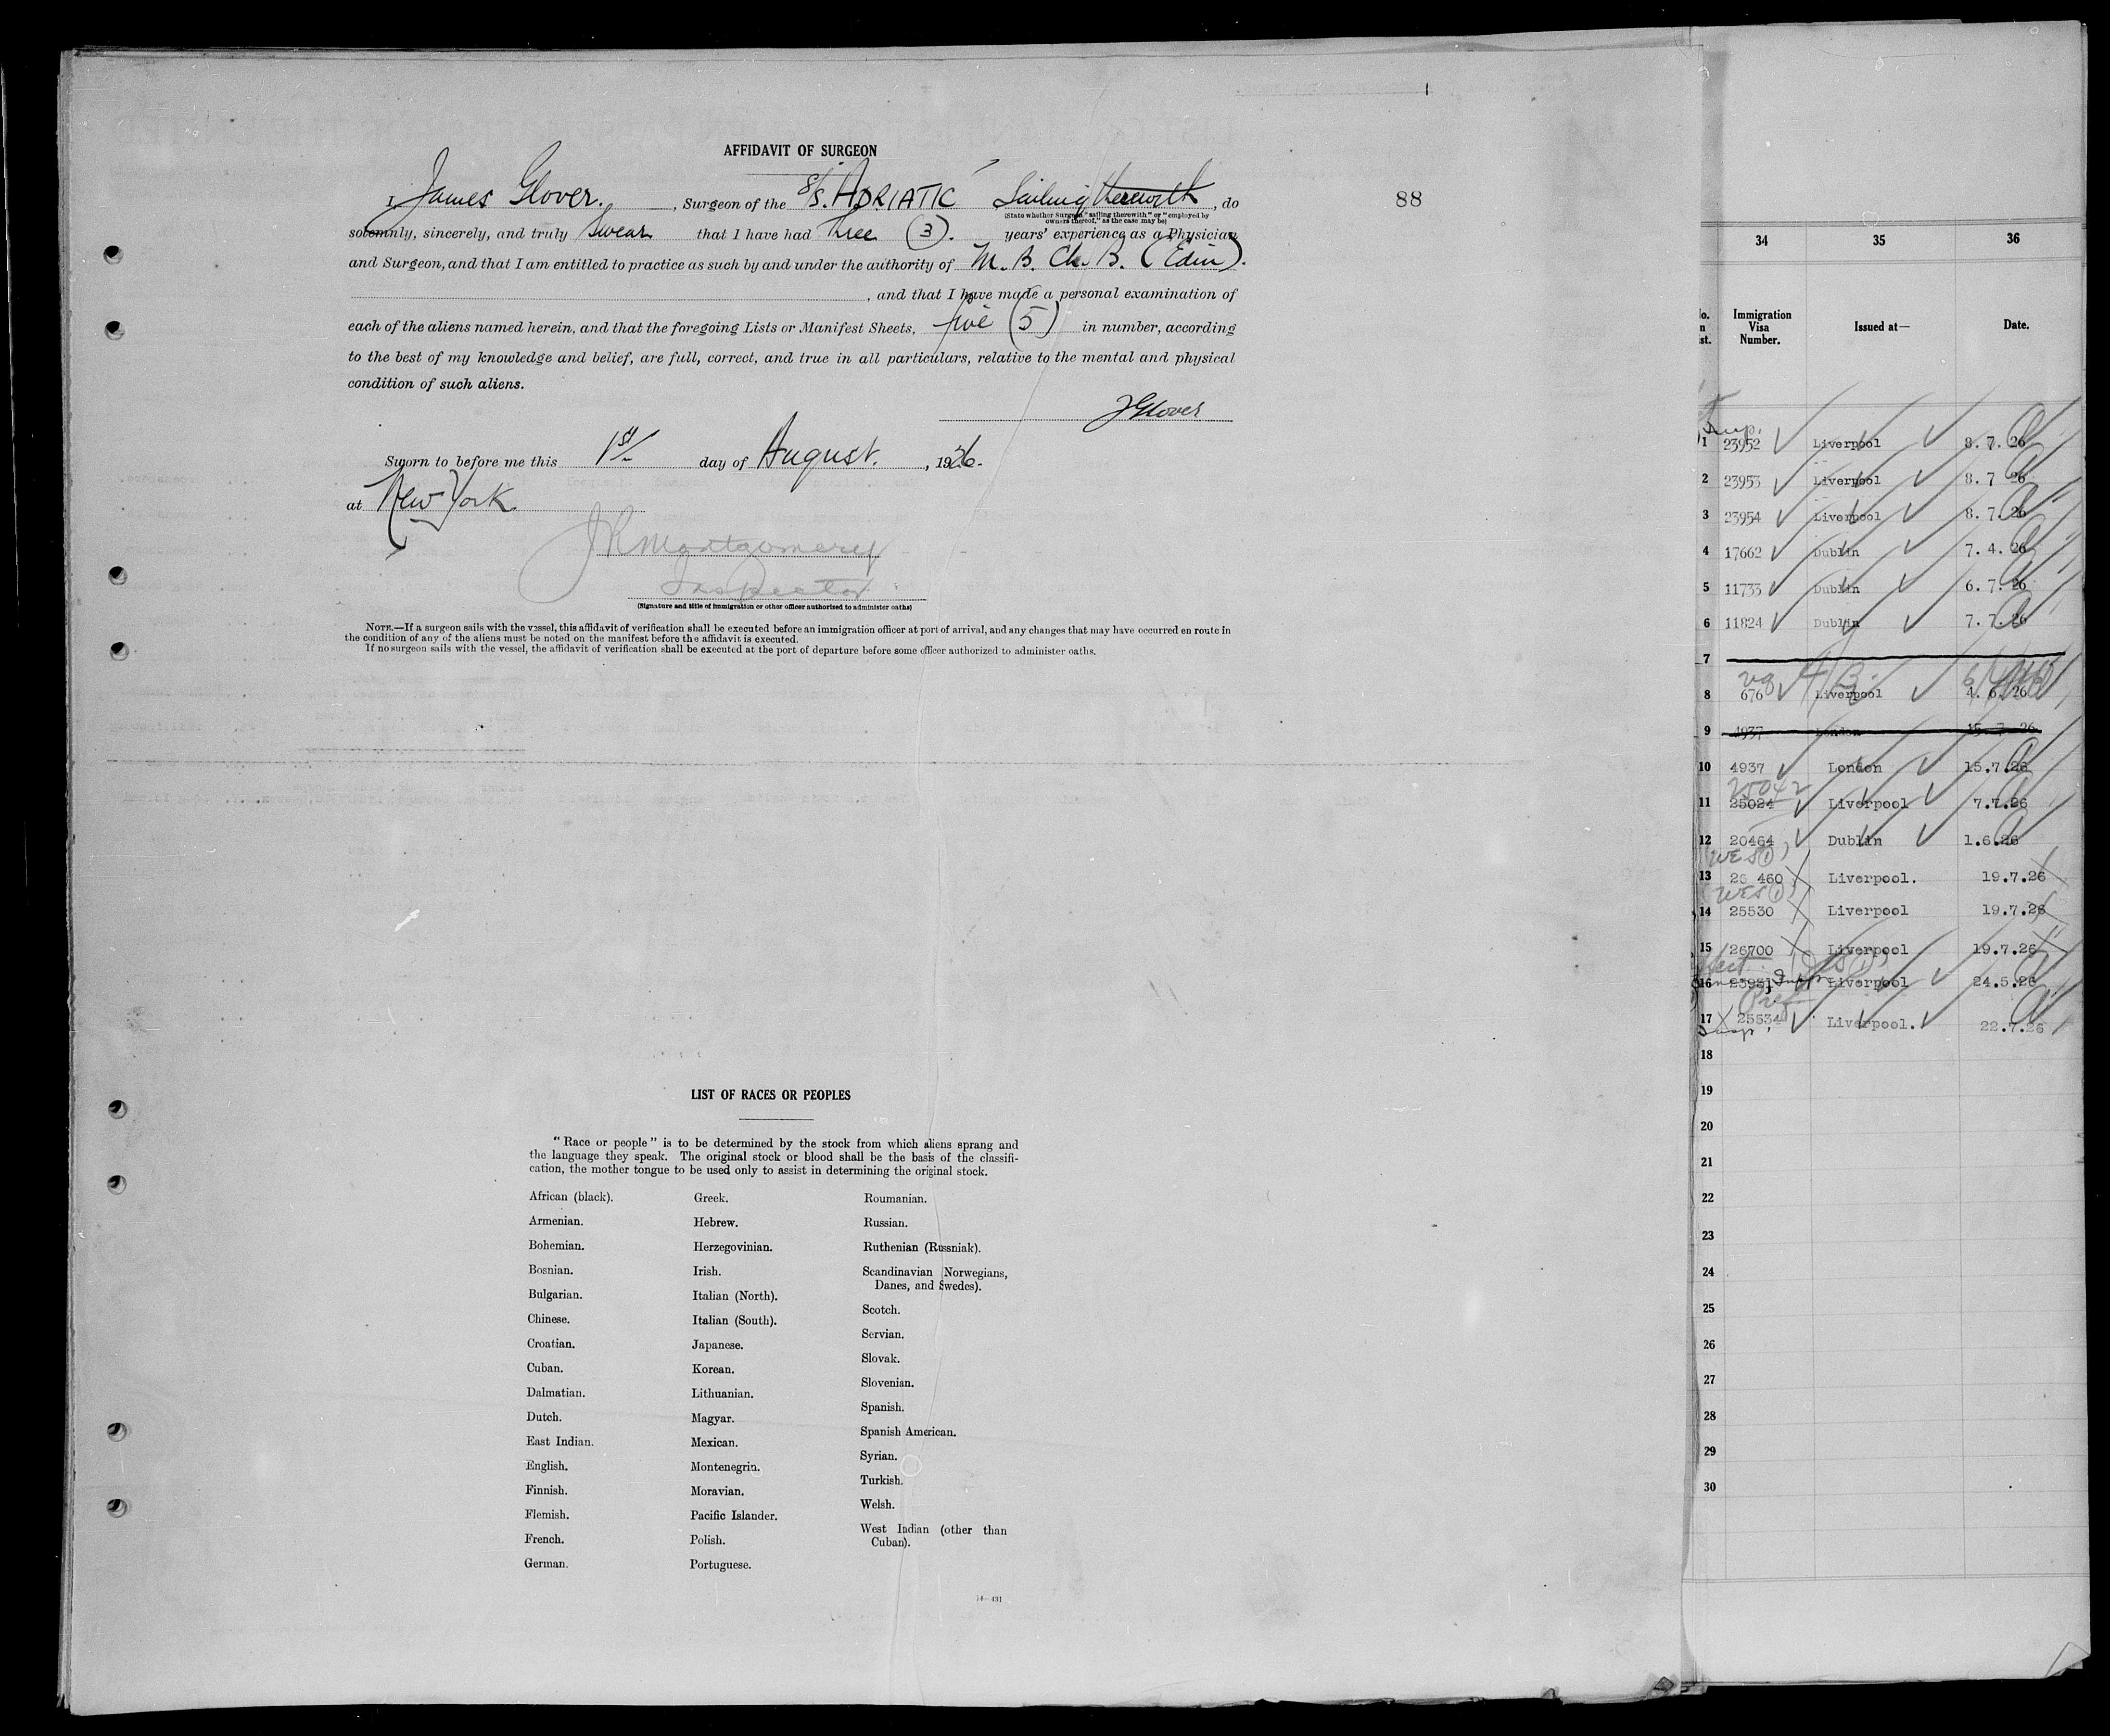 AFFIDAVIT OF SURGEON
I, James Glover. , Surgeon of the S/S. ADRIATIC Sailing therewith , do
(State whether Surgeon "sailing therewith" or "employed by
owners thereof," as the case may be)
solemnly, sincerely, and truly Swear that I have had Three (3). years' experience as a Physician
and Surgeon, and that I am entitled to practice as such by and under the authority of M. B. Ch. B. (Edin).
, and that I have made a personal examination of
each of the aliens named herein, and that the foregoing Lists or Manifest Sheets, five (5) in number, according
to the best of my knowledge and belief, are full, correct, and true in all particulars, relative to the mental and physical
condition of such aliens.
JGlover
Sworn to before me this 1st day of August. , 1926.
at New York
JR Montgomery
Inspector
(Signature and title of immigration or other officer authorized to administer oaths)
NOTE.—If a surgeon sails with the vessel, this affidavit of verification shall be executed before an immigration officer at port of arrival, and any changes that may have occurred en route in
the condition of any of the aliens must be noted on the manifest before the affidavit is executed.
If no surgeon sails with the vessel, the affidavit of verification shall be executed at the port of departure before some officer authorized to administer oaths.
88
LIST OF RACES OR PEOPLES
"Race or people" is to be determined by the stock from which aliens sprang and
the language they speak. The original stock or blood shall be the basis of the classifi-
cation, the mother tongue to be used only to assist in determining the original stock.
African (black).
Armenian.
Bohemian.
Bosnian.
Bulgarian.
Chinese.
Croatian.
Cuban.
Dalmatian.
Dutch.
East Indian.
English.
Finnish.
Flemish.
French.
German.
Greek.
Hebrew.
Herzegovinian.
Irish.
Italian (North).
Italian (South).
Japanese.
Korean.
Lithuanian.
Magyar.
Mexican.
Montenegrin.
Moravian.
Pacific Islander.
Polish.
Portuguese.
Roumanian.
Russian.
Ruthenian (Russniak).
Scandinavian (Norwegians,
Danes, and Swedes).
Scotch.
Servian.
Slovak.
Slovenian.
Spanish.
Spanish American.
Syrian.
Turkish.
Welsh.
West Indian (other than
Cuban).
14—431
34 35 36
Immigration
Visa
Number.
Issued at—
Date.
1 23952 Liverpool 8. 7. 26
2 23953 Liverpool 8. 7 26
3 23954 Liverpool 8. 7. 26
4 17662 Dublin 7. 4. 26
5 11733 Dublin 6. 7. 26
6 11824 Dublin 7. 7. 26
7
8 676 Liverpool 4. 6. 26
9 4937 London 15. 7. 26
10 4937 London 15.7.26
25042
11 25024 Liverpool 7.7.26
12 20464 Dublin 1.6.26
13 26 460 Liverpool. 19.7.26
14 25530 Liverpool 19.7.26
15 26700 Liverpool 19.7.26
16 23931 Liverpool 24.5.26
Pref
17 25534 Liverpool. 22.7.26
18
19
20
21
22
23
24
25
26
27
28
29
30